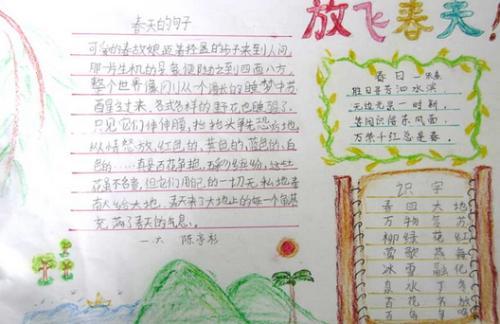 放飞春天！
春天的句子
可爱的春姑娘迈着轻盈的步子来到人间,
那一片生机的景象便随之到四面八方,
整个世界像刚从一个漫长的睡梦中苏
醒了过来。各式各样的野花也睡醒了。
只见它们伸伸腰,抬抬头,争先恐后地,
纵情怒放,红色的、黄色的、蓝色的、白
色的……真是百花争艳,五彩缤纷,这些
花虽不名贵,但它们用自己的一切无私地
献给大地,春天来了大地上的每一个角落
充满了春天的气息。
一.六 陈
春日 —朱熹
胜日寻芳泗水滨,
无边光景一时新,
等闲识得东风面,
万紫千红总是春。
识字
春回大地
万物复苏
柳绿花红
莺歌燕舞
冰雪融化
泉水丁冬
百花齐放
百鸟争鸣